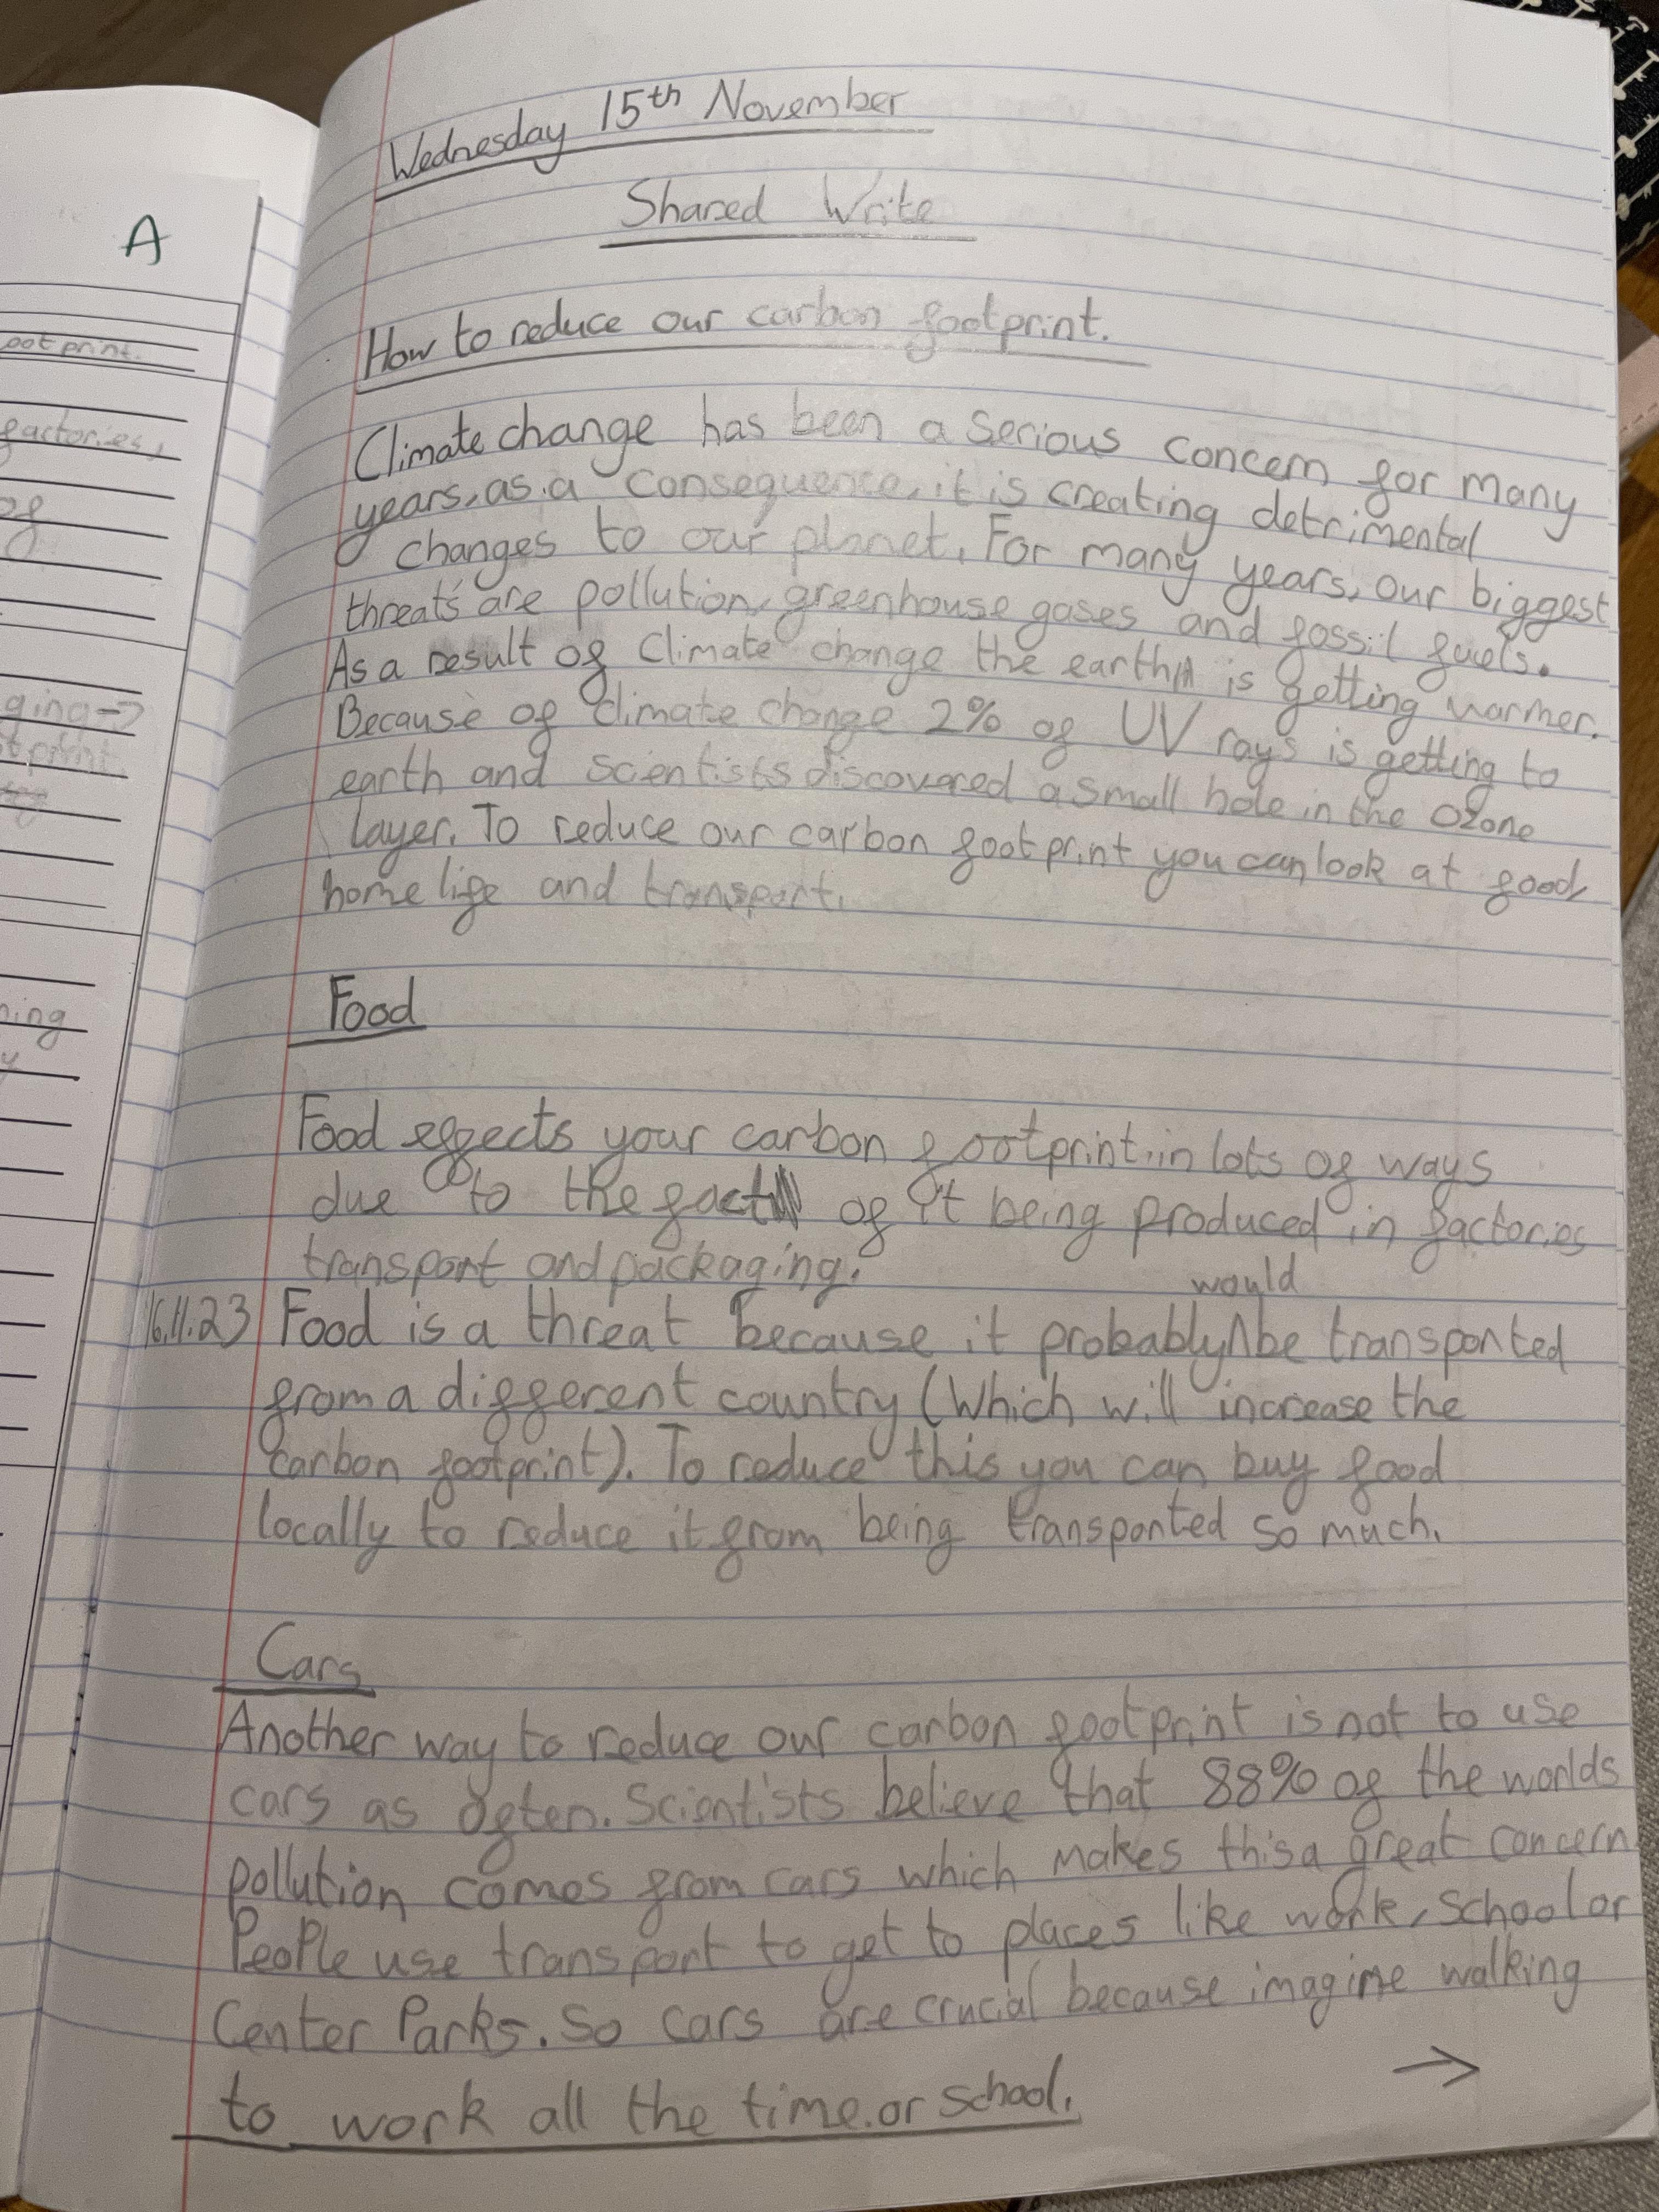 A
oot print.
factories,
of
ging→
ning
Wednesday 15th November
Shared Write
How to reduce our carbon footprint.
Climate change has been a serious concern for many
years, as a consequence, it is creating detrimental
changes to our planet. For many years, our biggest
threats are pollution, greenhouse gases and fossil fuels.
As a result of Climate change the earth is getting warmer.
Because of climate change 2% of UV rays is getting to
earth and scientists discovered a small hole in the ozone
layer. To reduce our carbon footprint you can look at food,
home life and transport.
Food
Food effects your carbon footprint in lots of ways
due to the fact of it being produced in factories
transport and packaging.
would
16.11.23 Food is a threat because it probably^be transported
from a different country (Which will increase the
carbon footprint). To reduce this you can buy food
locally to reduce it from being transported so much.
Cars
Another way to reduce our carbon footprint is not to use
cars as often. Scientists believe that 88% of the worlds
pollution comes from cars which makes this a great concern.
People use transport to get to places like work, school or
Center Parks. So cars are crucial because imagine walking
to work all the time.or school. →